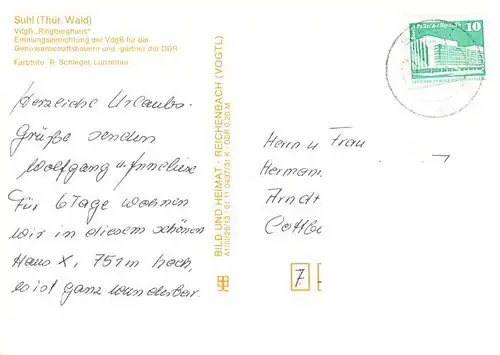 Suhl (Thür. Wald)
VdgB „Ringberghaus"
Erholungseinrichtung der VdgB für die
Genossenschaftsbauern und -gärtner der DDR
Farbfoto: R. Schlegel, Lunzenau
Herzliche Urlaubs-
Grüße senden
Wolfgang u. Anneliese
Für 6 Tage wohnen
wir in diesem schönen
Haus X, 751 m hoch,
es ist ganz wunderbar.
BILD UND HEIMAT · REICHENBACH (VOGTL)
A1/III/26/13 · 01 11 0437/31 K · DDR 0,20 M
10
Herrn u Frau
Herman
Arndt
Cottbu
7